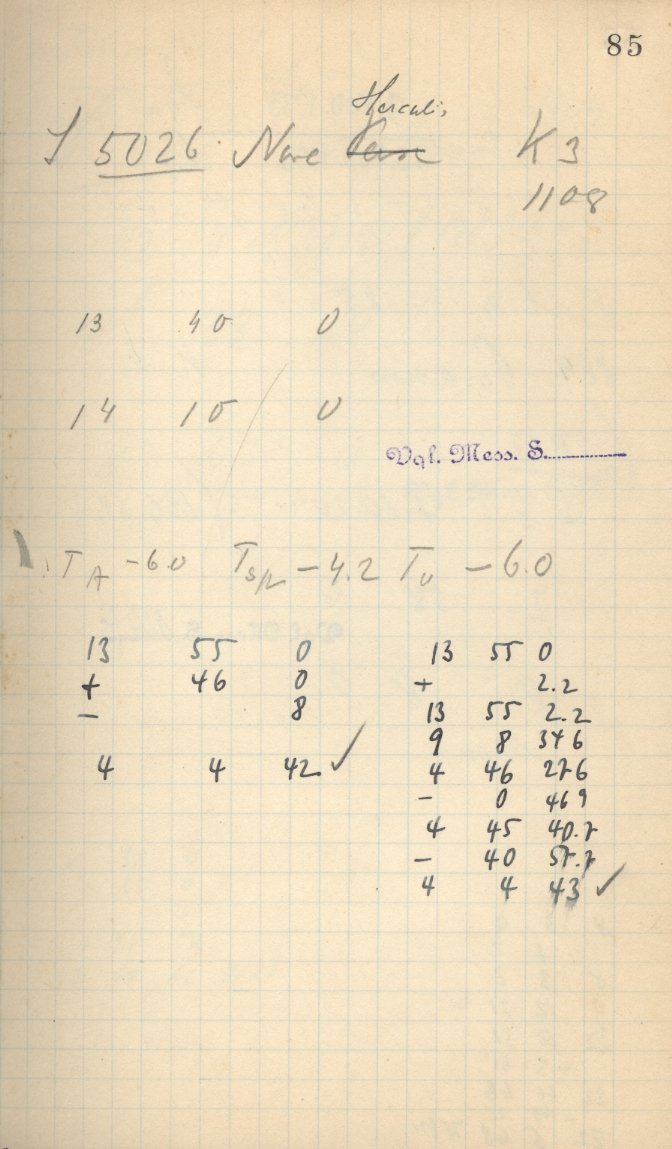 85
Herculis
S 5026 Nova K3
1108
13 45 0
14 15 0
Vgl. Mess. S.
T_A -6.0 T_Sp -4.2 T_U -6.0
13 55 0
+ 46 0
- 8
4 4 42 ✓
13 55 0
+ 2.2
13 55 2.2
9 8 346
4 46 276
- 0 469
4 45 40.7
- 40 57.7
4 4 43 ✓